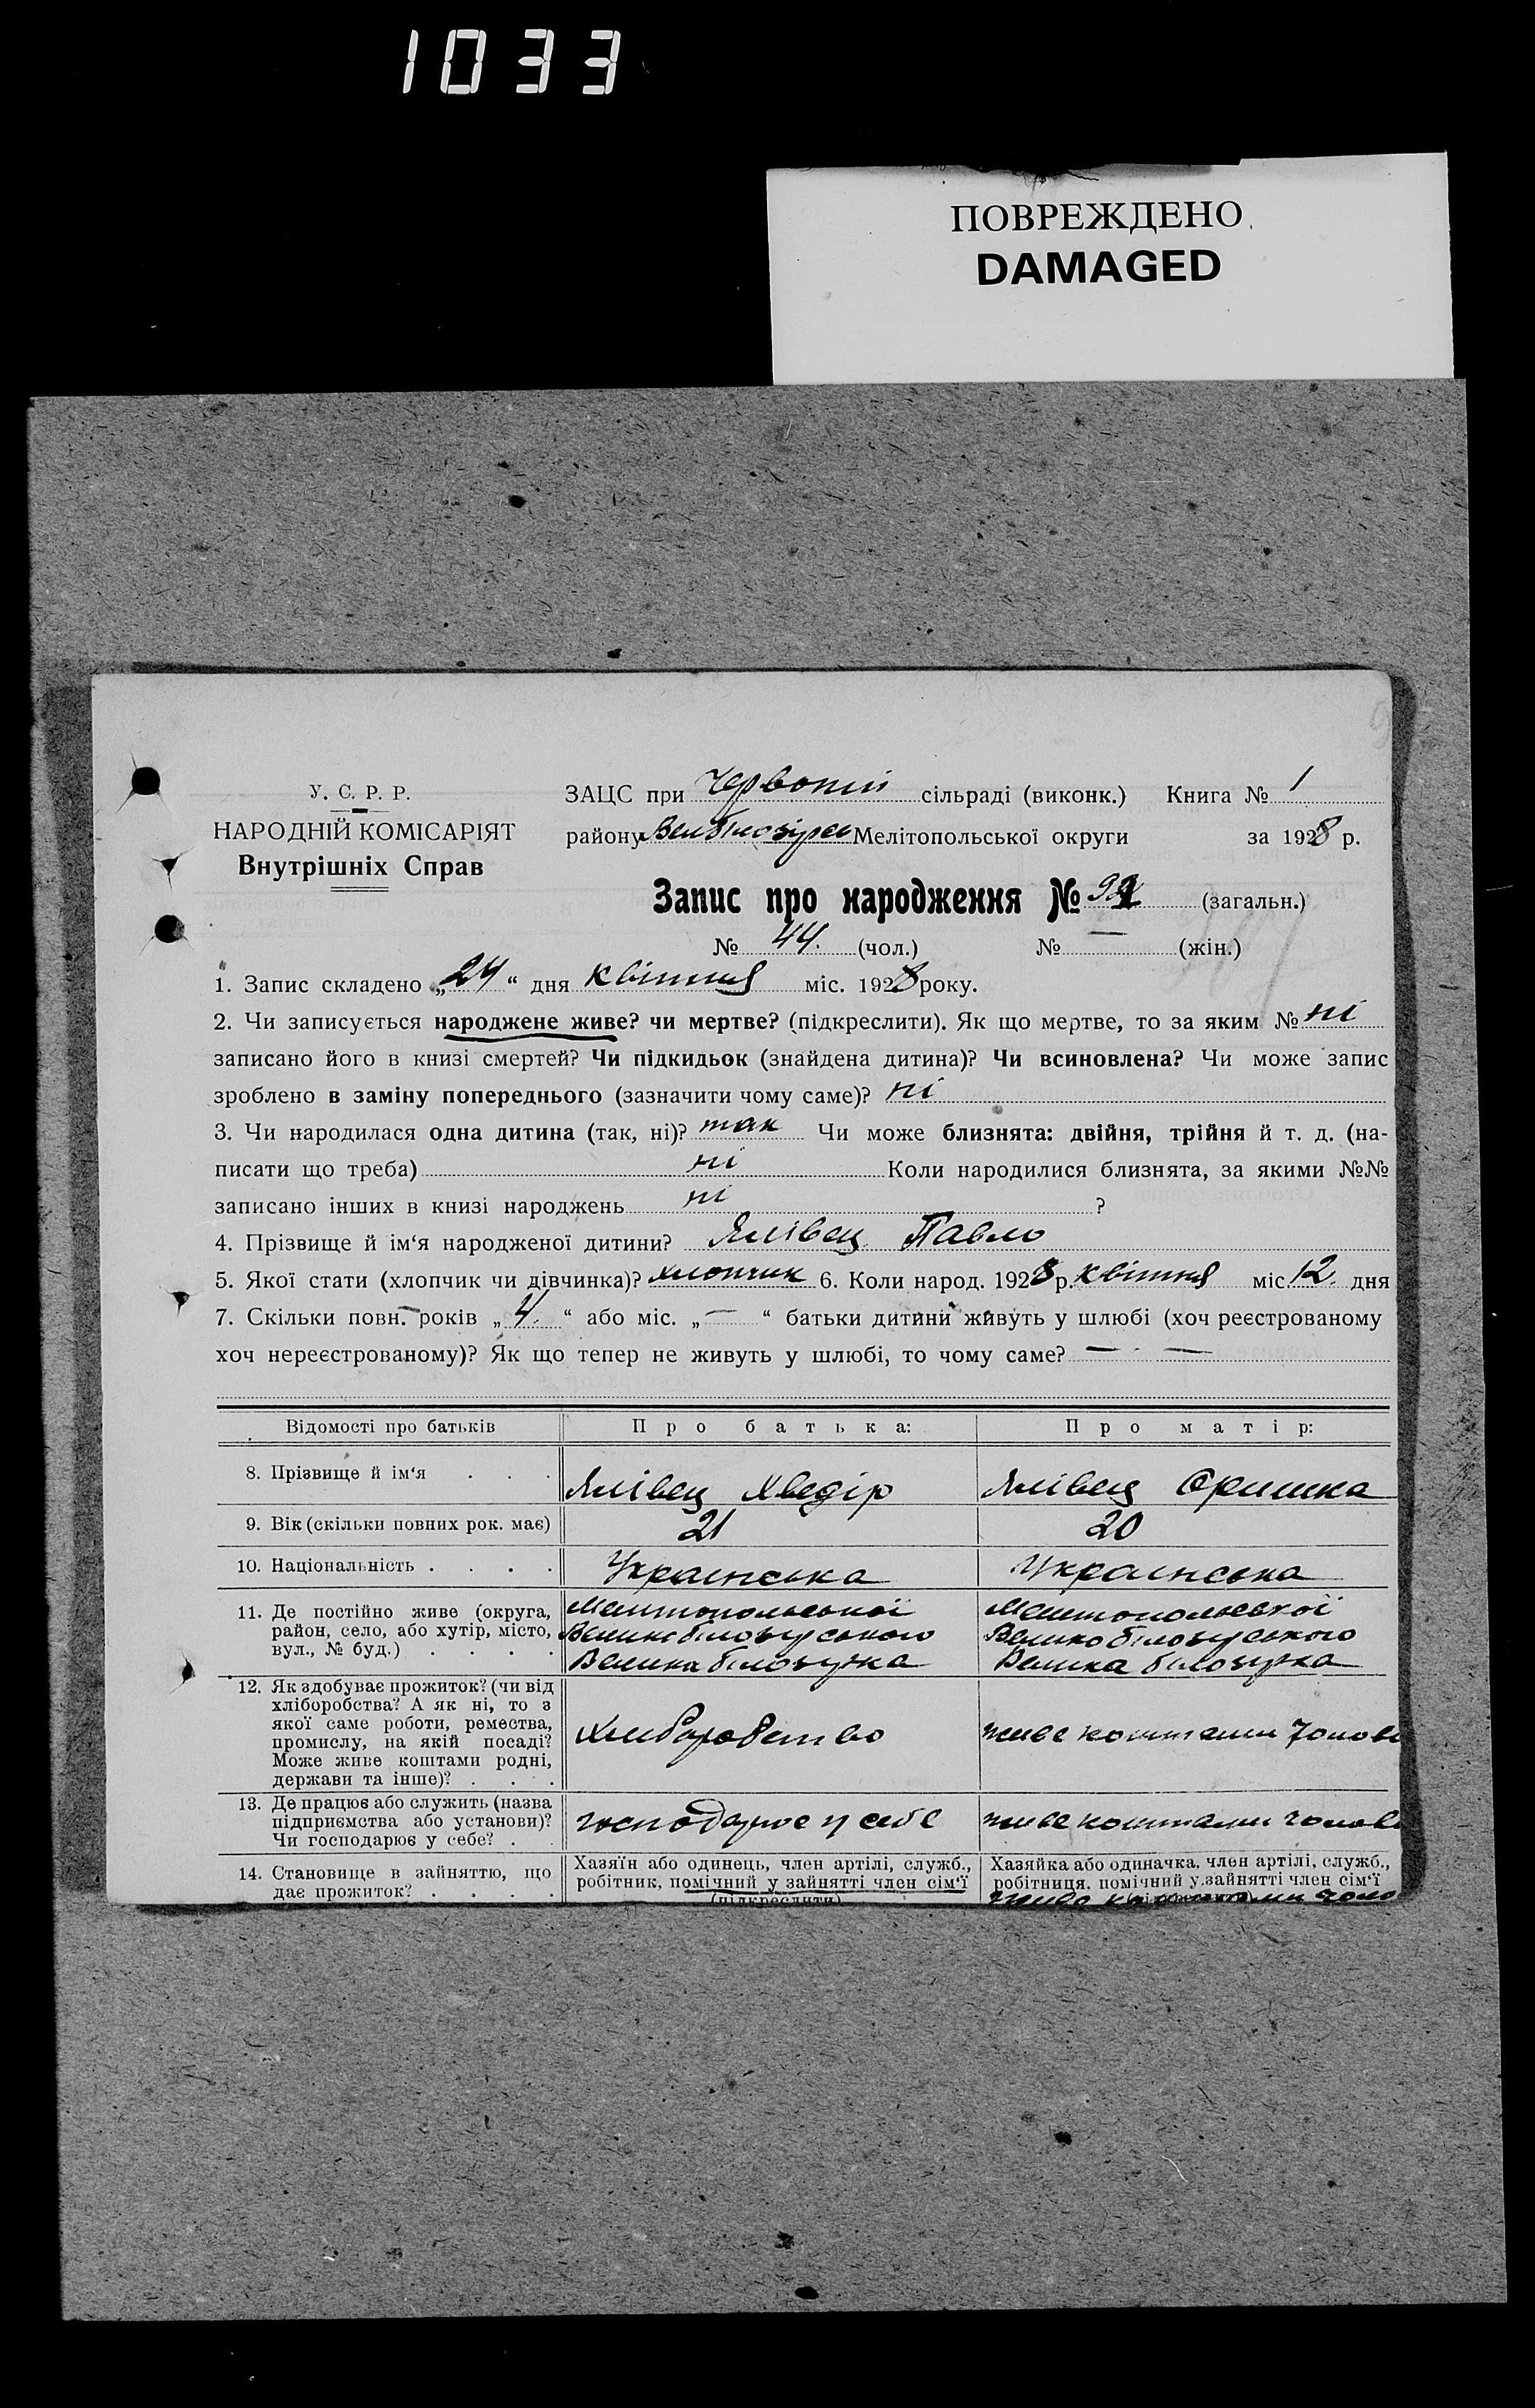 1033
ПОВРЕЖДЕНО
DAMAGED
У. С. Р. Р.
НАРОДНІЙ КОМІСАРІЯТ
Внутрішніх Справ
ЗАЦС при Червоній сільраді (виконк.) Книга № 1
району Мелітопольської округи за 1928 р.
Запис про народження № (загальн.)
№ 44. (чол.) № — (жін.)
1. Запис складено „24“ дня квітня міс. 1928 року.
2. Чи записується народжене живе? чи мертве? (підкреслити). Як що мертве, то за яким № ні
записано його в книзі смертей? Чи підкидьок (знайдена дитина)? Чи всиновлена? Чи може запис
зроблено в заміну попереднього (зазначити чому саме)? ні
3. Чи народилася одна дитина (так, ні)? так Чи може близнята: двійня, трійня й т. д. (на-
писати що треба) ні Коли народилися близнята, за якими №№
записано інших в книзі народжень ні ?
4. Прізвище й ім‘я народженої дитини? Ялівец Павло
5. Якої стати (хлопчик чи дівчинка)? хлопчик 6. Коли народ. 1928 р. квітня міс. 12. дня
7. Скільки повн. років „4.“ або міс. „—“ батьки дитини живуть у шлюбі (хоч реєстрованому
хоч нереєстрованому)? Як що тепер не живуть у шлюбі, то чому саме? — —
Відомості про батьків Про батька: Про матір:
8. Прізвище й ім‘я . . . Ялівец Хведір Ялівец Оришка
9. Вік (скільки повних рок. має) 21 20
10. Національність . . . . Українська Українська
11. Де постійно живе (округа,
район, село, або хутір, місто,
вул., № буд.) . . . .
Мелітопольської
Великобілозурського
Велика білозурка
Мелітопольської
Великобілозурського
Велика білозурка
12. Як здобуває прожиток? (чи від
хліборобства? А як ні, то з
якої саме роботи, ремества,
промислу, на якій посаді?
Може живе коштами родні,
держави та інше)? . . .
Хліборобство
живе коштами чолові
13. Де працює або служить (назва
підприємства або установи)?
Чи господарює у себе? . .
господарює у себе
живе коштами чолові
14. Становище в зайняттю, що
дає прожиток? . . . .
Хазяїн або одинець, член артілі, служб.,
робітник, помічний у зайнятті член сім‘ї
(підкреслити)
Хазяйка або одиначка, член артілі, служб.,
робітниця, помічний у зайнятті член сім‘ї
живе коштами чоло